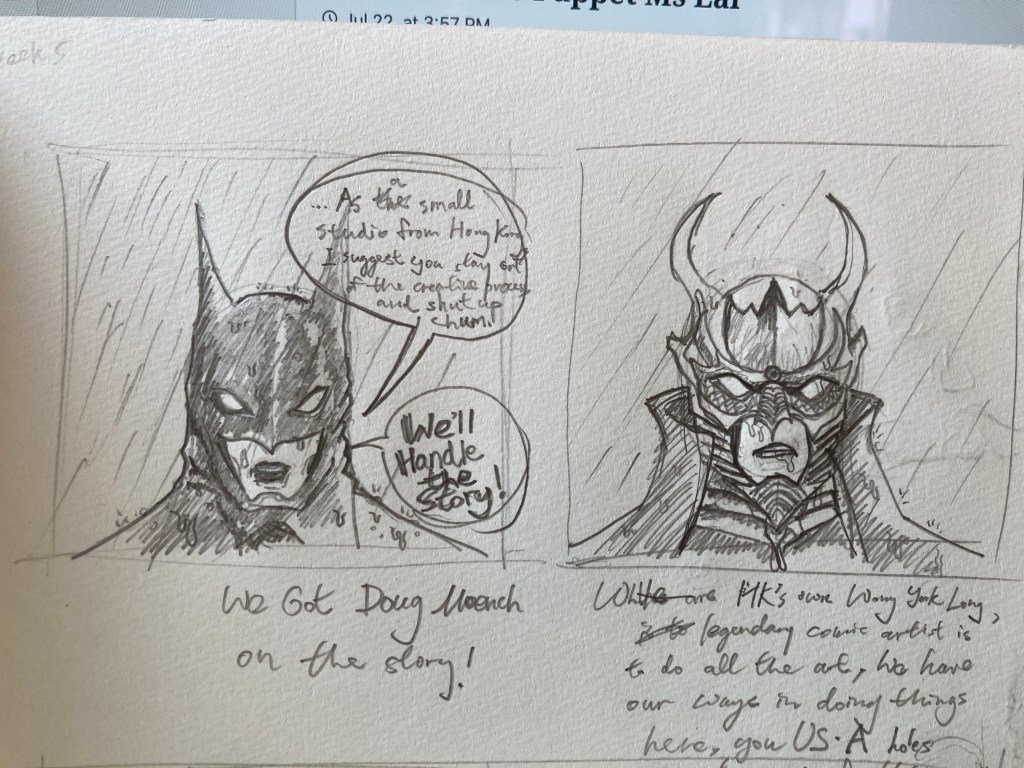 Puppet Ms Lai
Jul 22, at 3:57 PM
week 5
a
... As this small
studio from Hong Kong,
I suggest you stay out
of the creative process,
and shut up
chum.
We'll
Handle
the
Story!
We Got Doug Moench
on the story!
While are HK's own Wong Yuk Long,
is to legendary comic artist is
to do all the art, We have
our ways in doing things
here, you US·A holes